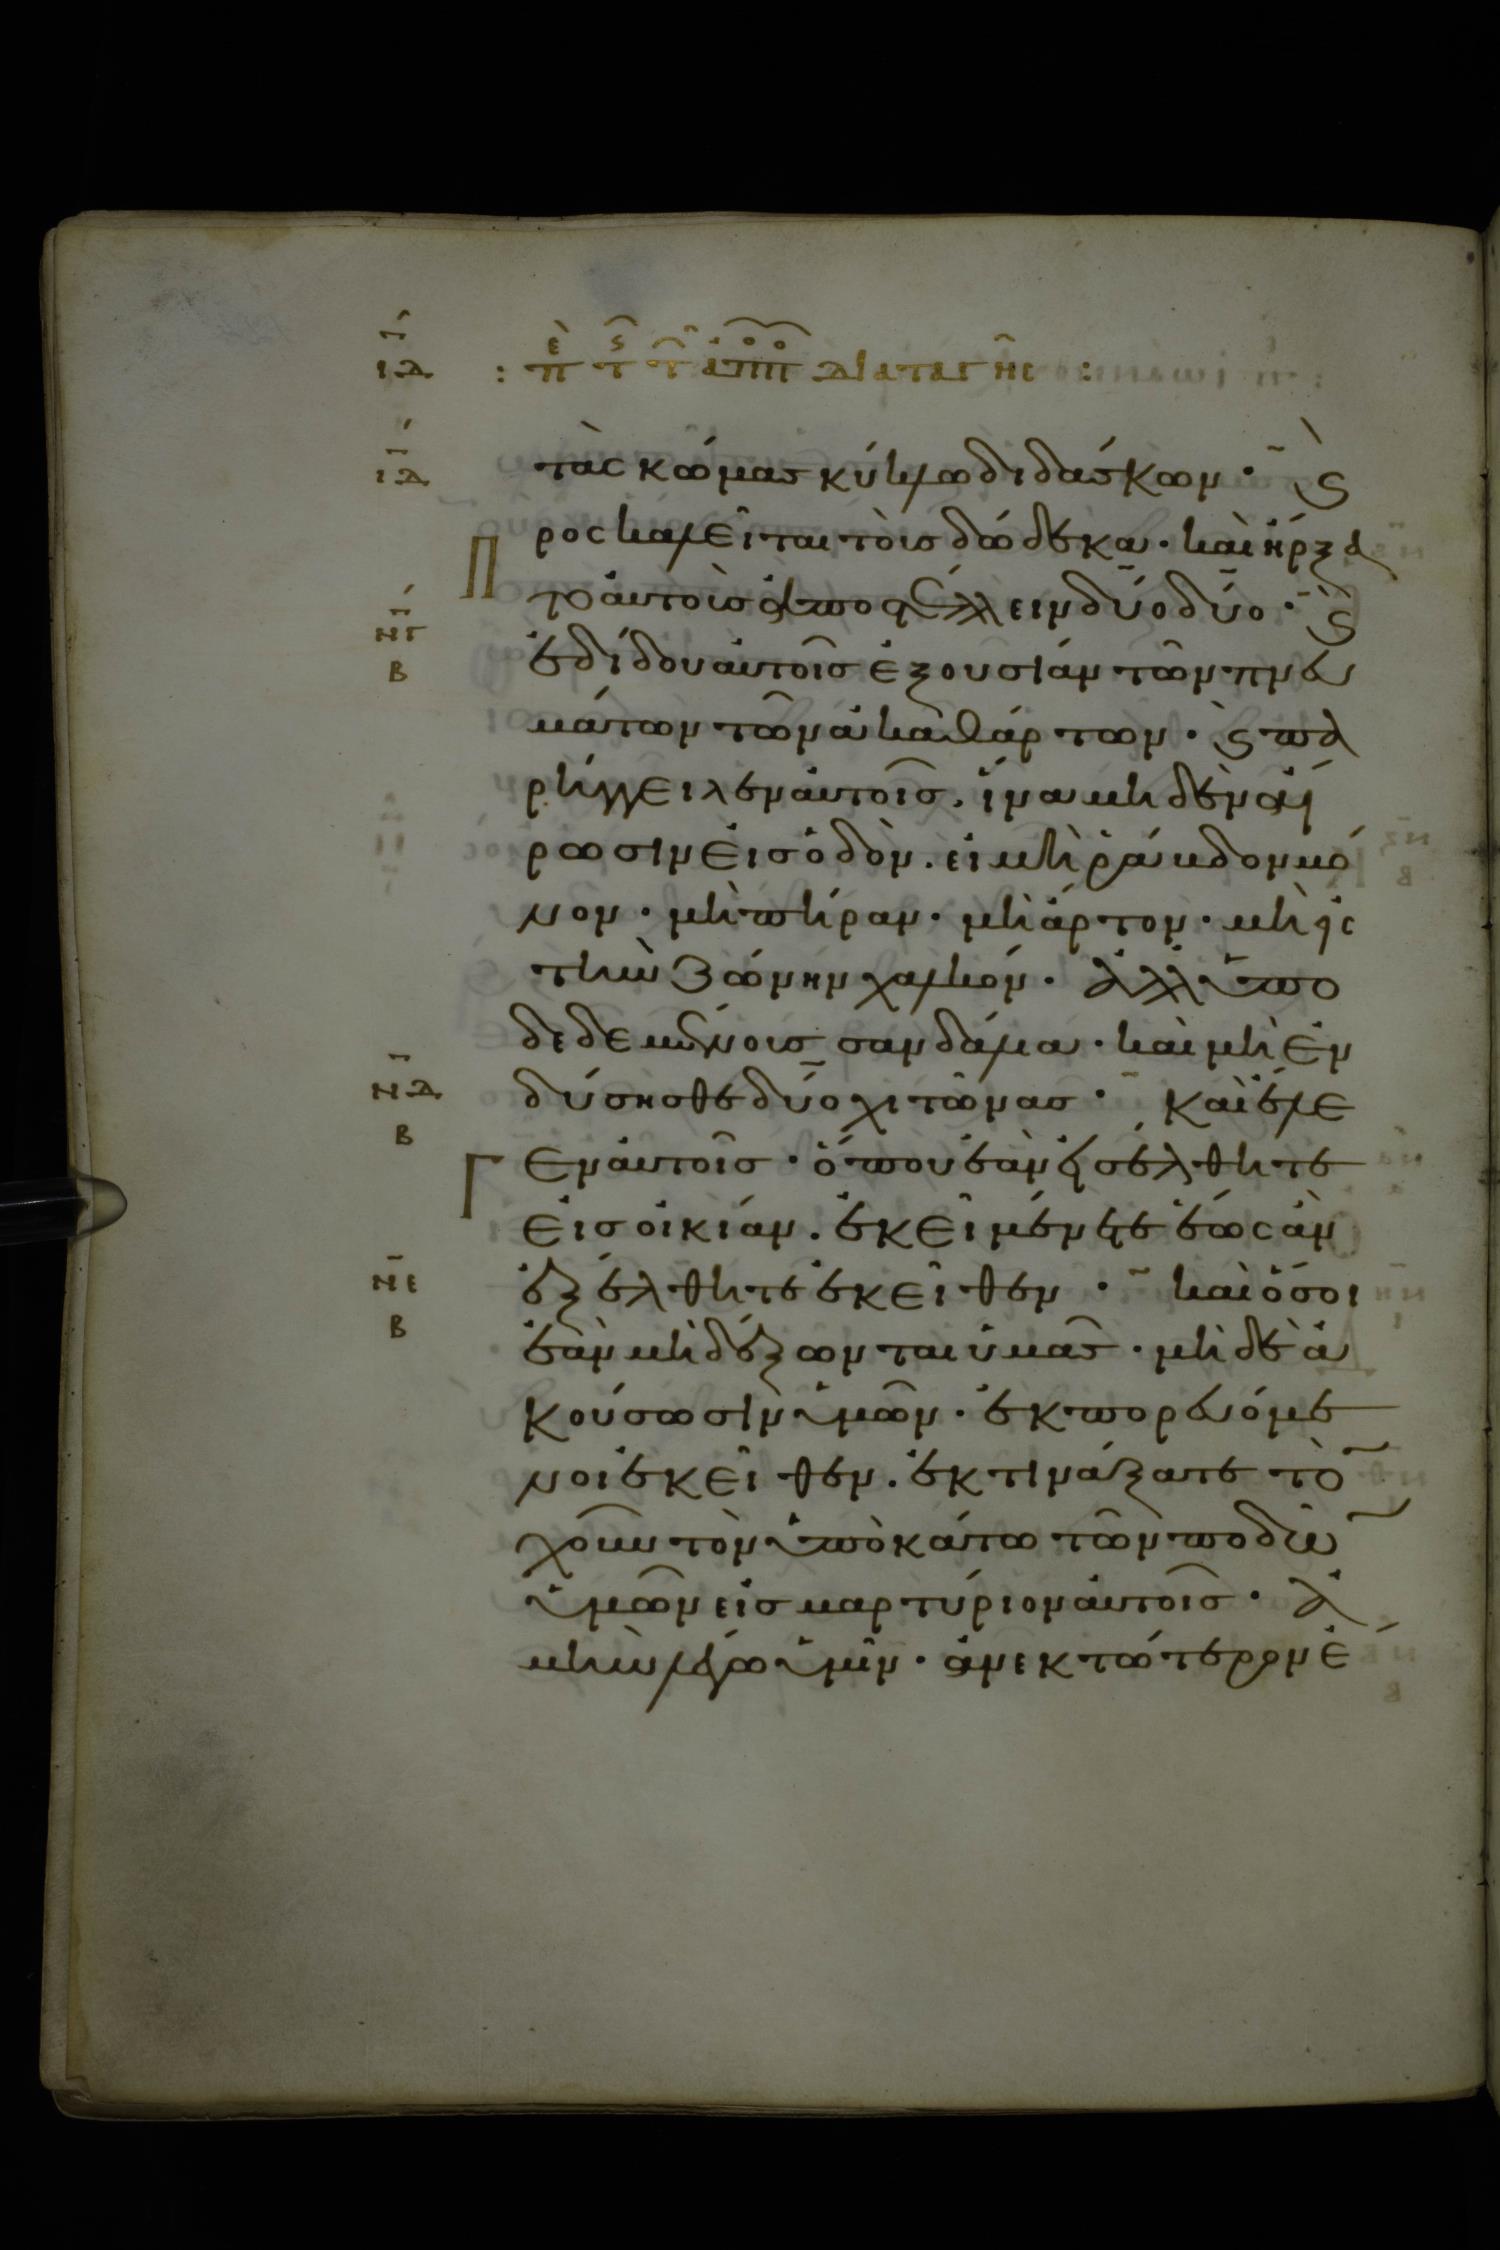 ΙΔ : πε τς τ ἀπο διαταγῆς :
ΙΔ τὰς κώμας κύκλω διδάσκων· καὶ
προσκαλεῖται τοὶς δώδεκα· καὶ ἤρξα
το αὐτοὶς ἀποστέλλειν δύο δύο· καὶ
ΝΓ
Β
ἐδίδου αὐτοῖς ἐξουσίαν τῶν πνευ
μάτων τῶν ἀκαθάρτων· καὶ πα
ρήγγειλεν αὐτοῖς. ἵνα μηδὲν αἴ
ρωσιν εἰς ὁδὸν. εἰ μὴ ῥάβδον μό
νον· μὴ πήραν· μὴ ἄρτον· μὴ εἰς
τὴν ζώνην χαλκόν· ἀλλ ὑπο
δεδεμένοις σανδάλια· καὶ μὴ ἐν
ΝΔ δύσησθε δύο χιτῶνας· Καὶ ἔλε
Β
Γεν αὐτοῖς· ὅπου ἐὰν εἰσέλθητε
εἰς οἰκίαν. ἐκεῖ μένετε ἕως ἂν
ΝΕ ἐξέλθητε ἐκεῖθεν· καὶ ὅσοι
Β ἐὰν μὴ δέξωνται ὑμᾶς· μὴ δὲ ἀ
κούσωσιν ὑμῶν· ἐκπορευόμε
νοι ἐκεῖθεν. ἐκτινάξατε τὸ
χοῦν τὸν ὑποκάτω τῶν ποδῶ
ὑμῶν εἰς μαρτύριον αὐτοῖς· ἀ
μὴν λέγω ὑμῖν· ἀνεκτότερον ἔ